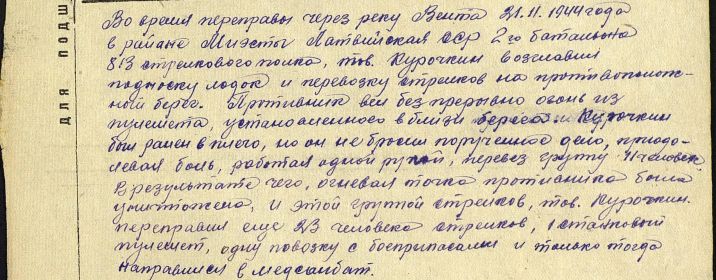 для подш
Во время переправы через реку Вента 21.11.1944 года
в районе Миэсты Латвийская ССР 2го баталиона
813 стрелкового полка, тов. Курочкин возглавил
подноску лодок и перевозку стрелков на противополож-
ный берег. Противник вел без прерывно огонь из
пулемета, установленного вблизи берега. и Курочкин
был ранен в плечо, но он не бросил порученное дело, преодо-
левая боль, работая одной рукой, перевез группу 11 человек.
В результате чего, огневая точка противника была
уничтожена, и этой группой стрелков, тов. Курочкин.
переправил еще 23 человека стрелков, 1 станковый
пулемет, одну повозку с боеприпасами и только тогда
направился в медсанбат.